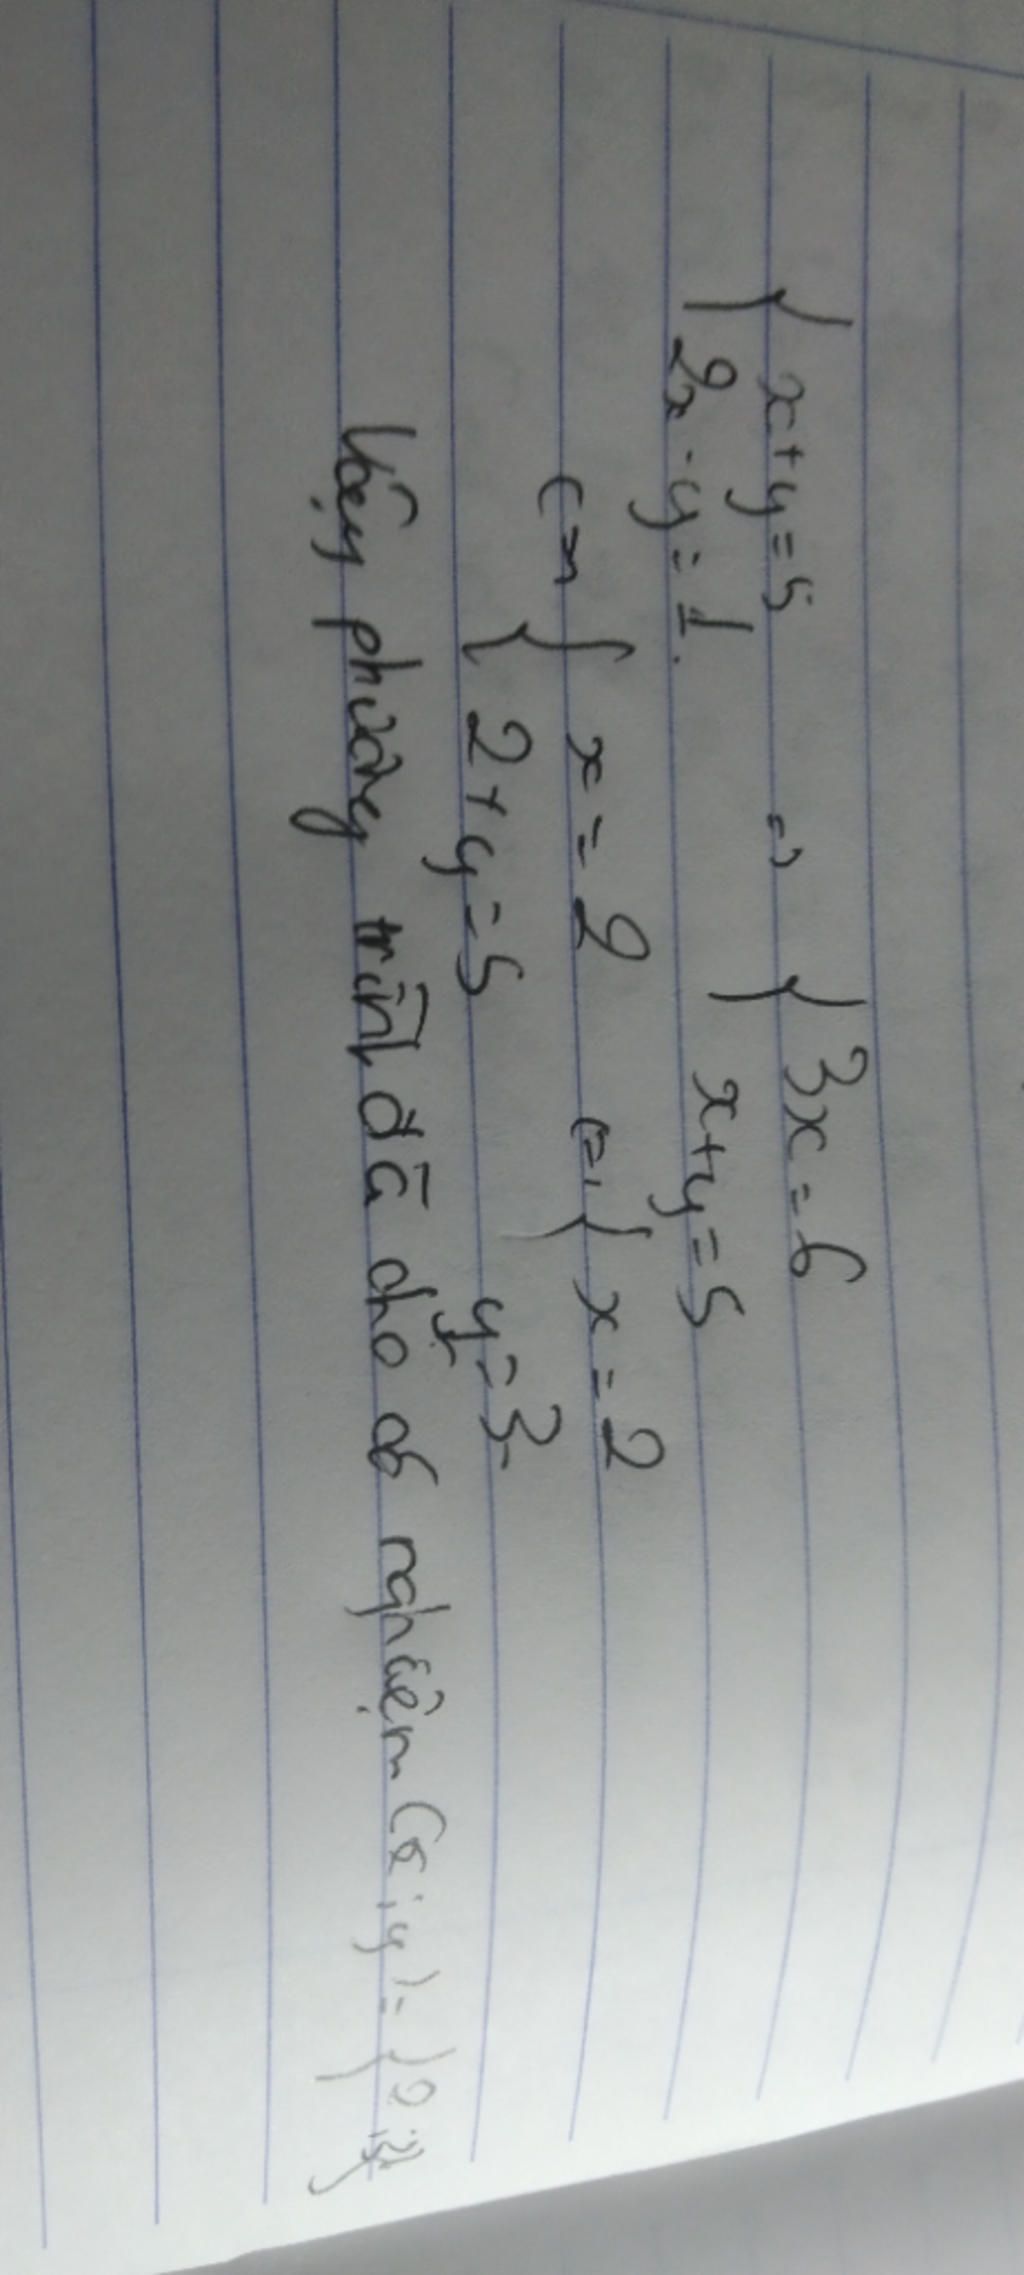 { x+y=5 => { 3x=6
{ 2x-y=1. { x+y=5
<=> { x=2 <=> { x=2
{ 2+y=5 { y=3
Vậy phương trình đã cho có nghiệm (x;y)={2;3}